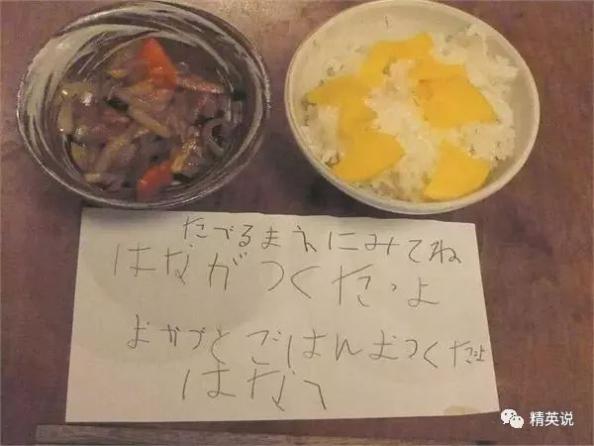 たべるまえにみてね
はながつくたよ
おかづとごはんおつくたよ
はなへ
精英说